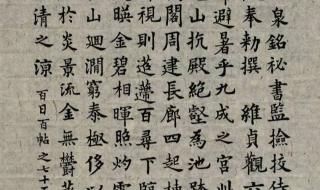 泉銘祕書監撿挍侍
奉勅撰 維貞觀六
避暑乎九成之宮
山抗殿絕壑為池跨
閣周建長廊四起棟
視則迢遰百尋下臨
暎金碧相暉照灼雲
山迴澗窮泰極侈以
於炎景流金無鬱蒸
清之涼 百日百帖之七十